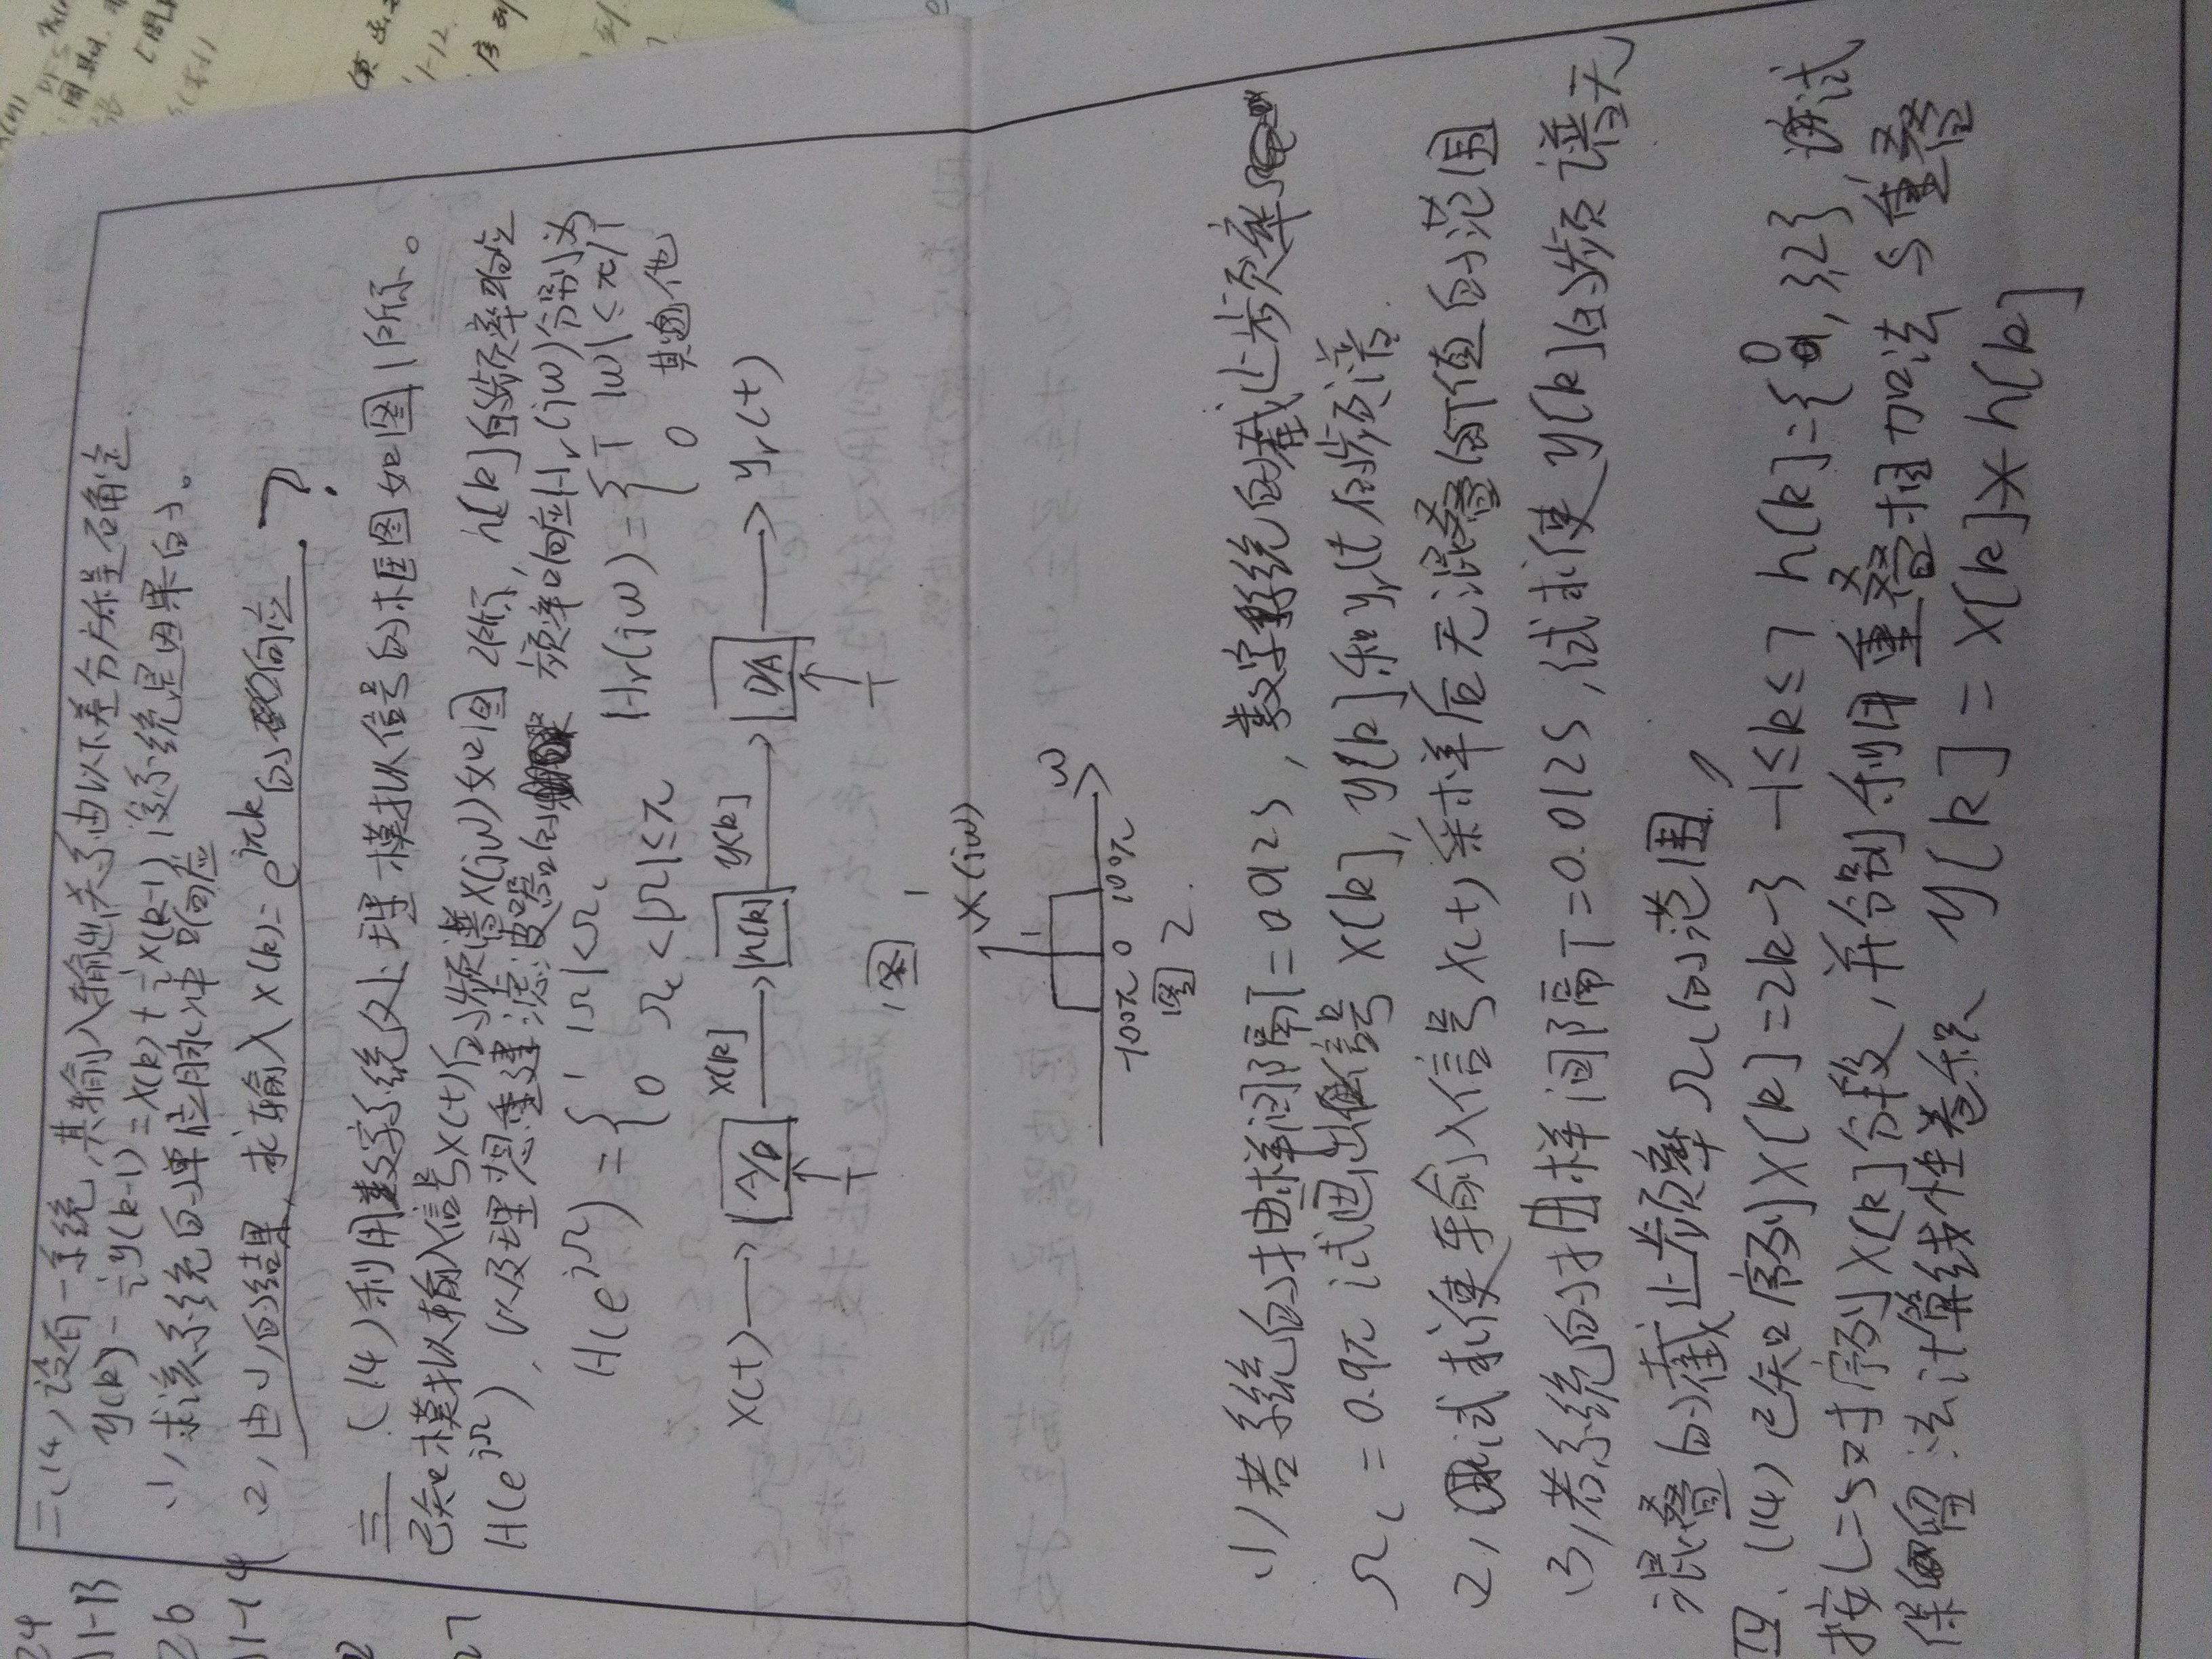 二(14)设有一系统,其输入输出关系由以下差分方程确定
y(k)-½y(k-1)=x(k)+½x(k-1) 设系统是因果的。
(1)求该系统的单位脉冲响应
(2)由(1)的结果,求输入x(k)=e^{jπk}的响应 ?
三 (14)利用数字系统处理模拟信号的框图如图1所示。
已知模拟输入信号x(t)的频谱X(jω)如图2所示,h[k]的频率响应
H(e^{jΩ}),以及理想重建滤波器的频率响应Hr(jω)分别为
H(e^{jΩ})={1 |Ω|<Ωc
0 Ωc<|Ω|≤π
Hr(jω)={T |ω|<π/T
0 其他
x(t) → A/D → x[k] → h[k] → y[k] → D/A → yr(t)
T T
图1
X(jω)
1
ω
-100π 0 10π
图2
(1)若系统的抽样间隔T=0.01s,数字系统的截止频率
Ωc=0.9π 试画出信号x[k],y[k]和yr(t的频谱.
(2)试求使输入信号x(t)采样后无混叠的T值的范围
(3)若系统的抽样间隔T=0.012s,试求使y[k]的频谱无
混叠的截止频率Ωc的范围,
四.(14)已知序列x[k]=2k-3 -1≤k≤7 h[k]={0,3,2},试
按L=5对序列x[k]分段,并分别利用重叠相加法与重叠
保留法计算线性卷积 y[k]=x[k]*h[k]
24
1-13
26
1-14
27
1-12